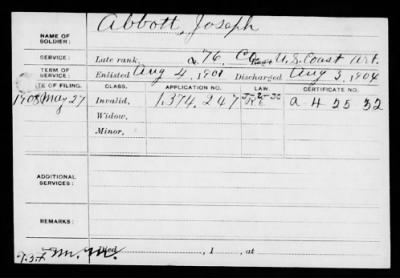 Abbott, Joseph
NAME OF SOLDIER:
SERVICE: Late rank, 76, Co. U.S. Coast Art.
TERM OF SERVICE: Enlisted Aug 4, 1901 Discharged Aug 3, 1904
DATE OF FILING. CLASS. APPLICATION NO. LAW. CERTIFICATE NO.
1908 May 27 Invalid, 1,374,247 a 4 55 32
Widow,
Minor,
ADDITIONAL SERVICES:
REMARKS:
Died , 1 , at